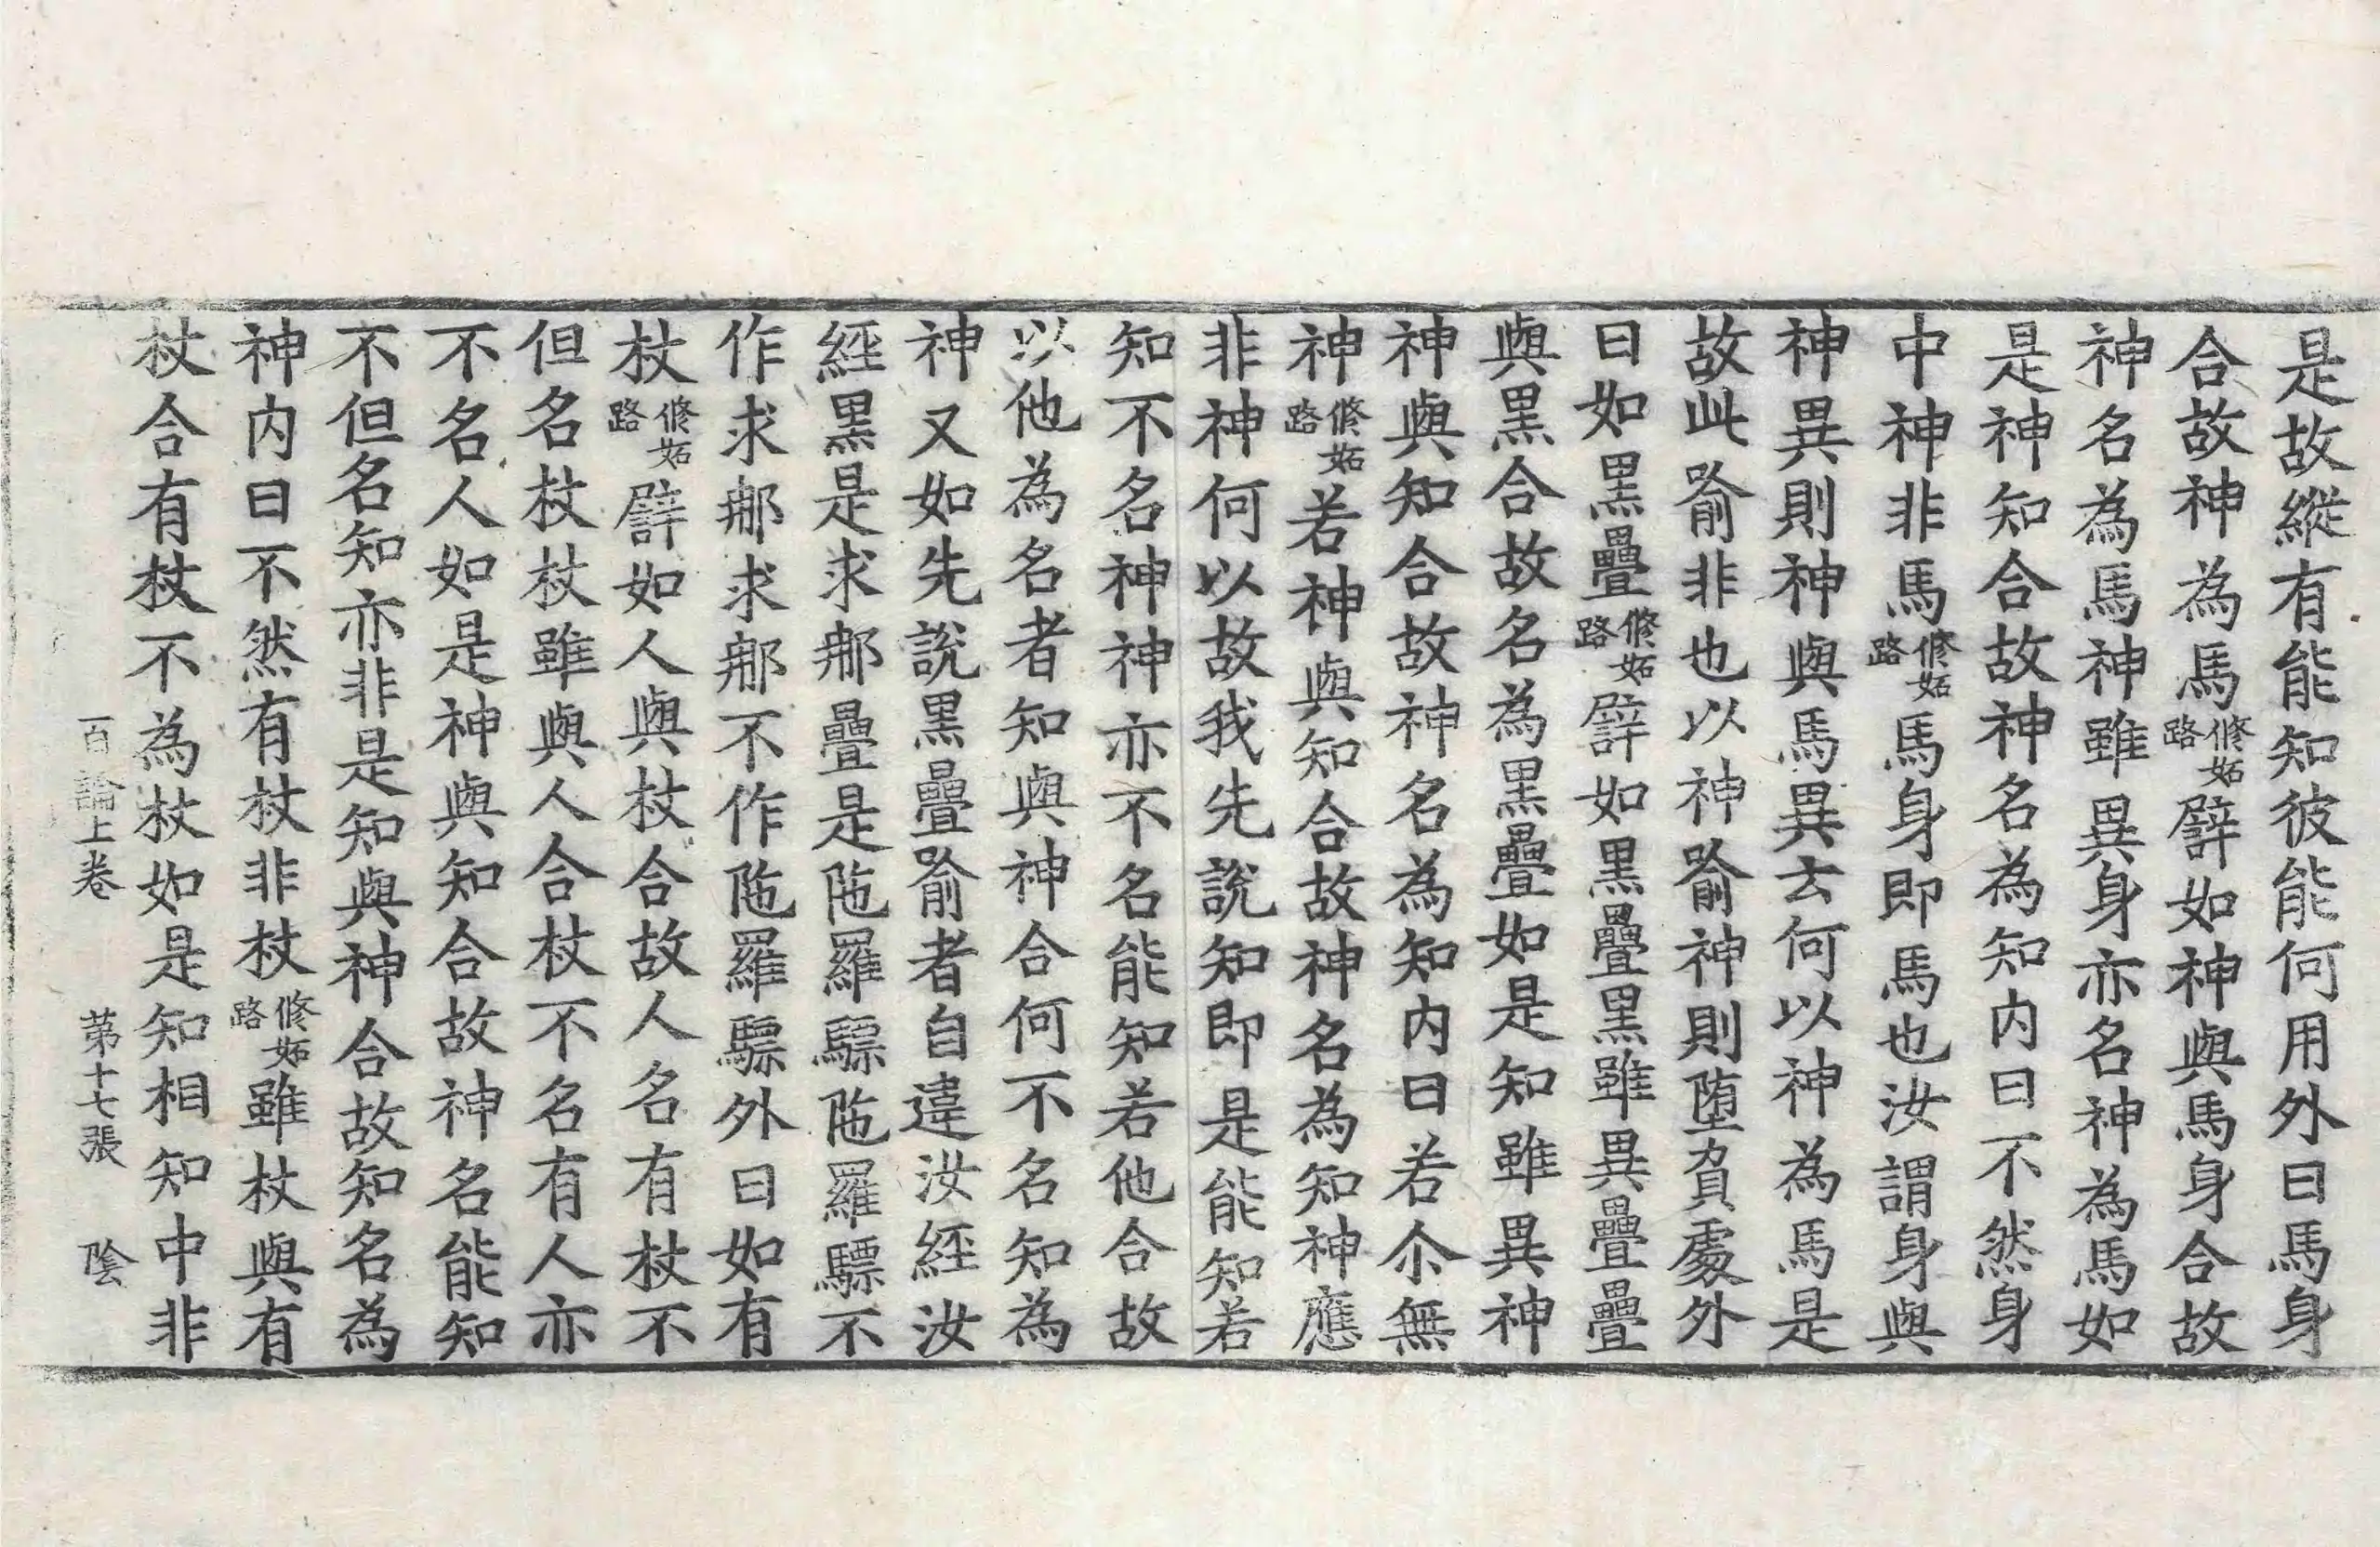 是故縱有能知彼能何用外曰馬身
合故神為馬修妬路譬如神與馬身合故
神名為馬神雖異身亦名神為馬如
是神知合故神名為知內曰不然身
中神非馬修妬路馬身即馬也汝謂身與
神異則神與馬異去何以神為馬是
故此喻非也以神喻神則堕負處外
曰如黑疊修妬路譬如黑疊黑雖異疊疊
與黑合故名為黑疊如是知雖異神
神與知合故神名為知內曰若尒無
神修妬路若神與知合故神名為知神應
非神何以故我先說知即是能知若
知不名神神亦不名能知若他合故
以他為名者知與神合何不名知為
神又如先說黑疊喻者自違汝經汝
經黑是求郍疊是陁羅驃陁羅驃不
作求郍求郍不作陁羅驃外曰如有
杖修妬路譬如人與杖合故人名有杖不
但名杖杖雖與人合杖不名有人亦
不名人如是神與知合故神名能知
不但名知亦非是知與神合故知名為
神內曰不然有杖非杖修妬路雖杖與有
杖合有杖不為杖如是知相知中非
百論上卷 第十七張 陰